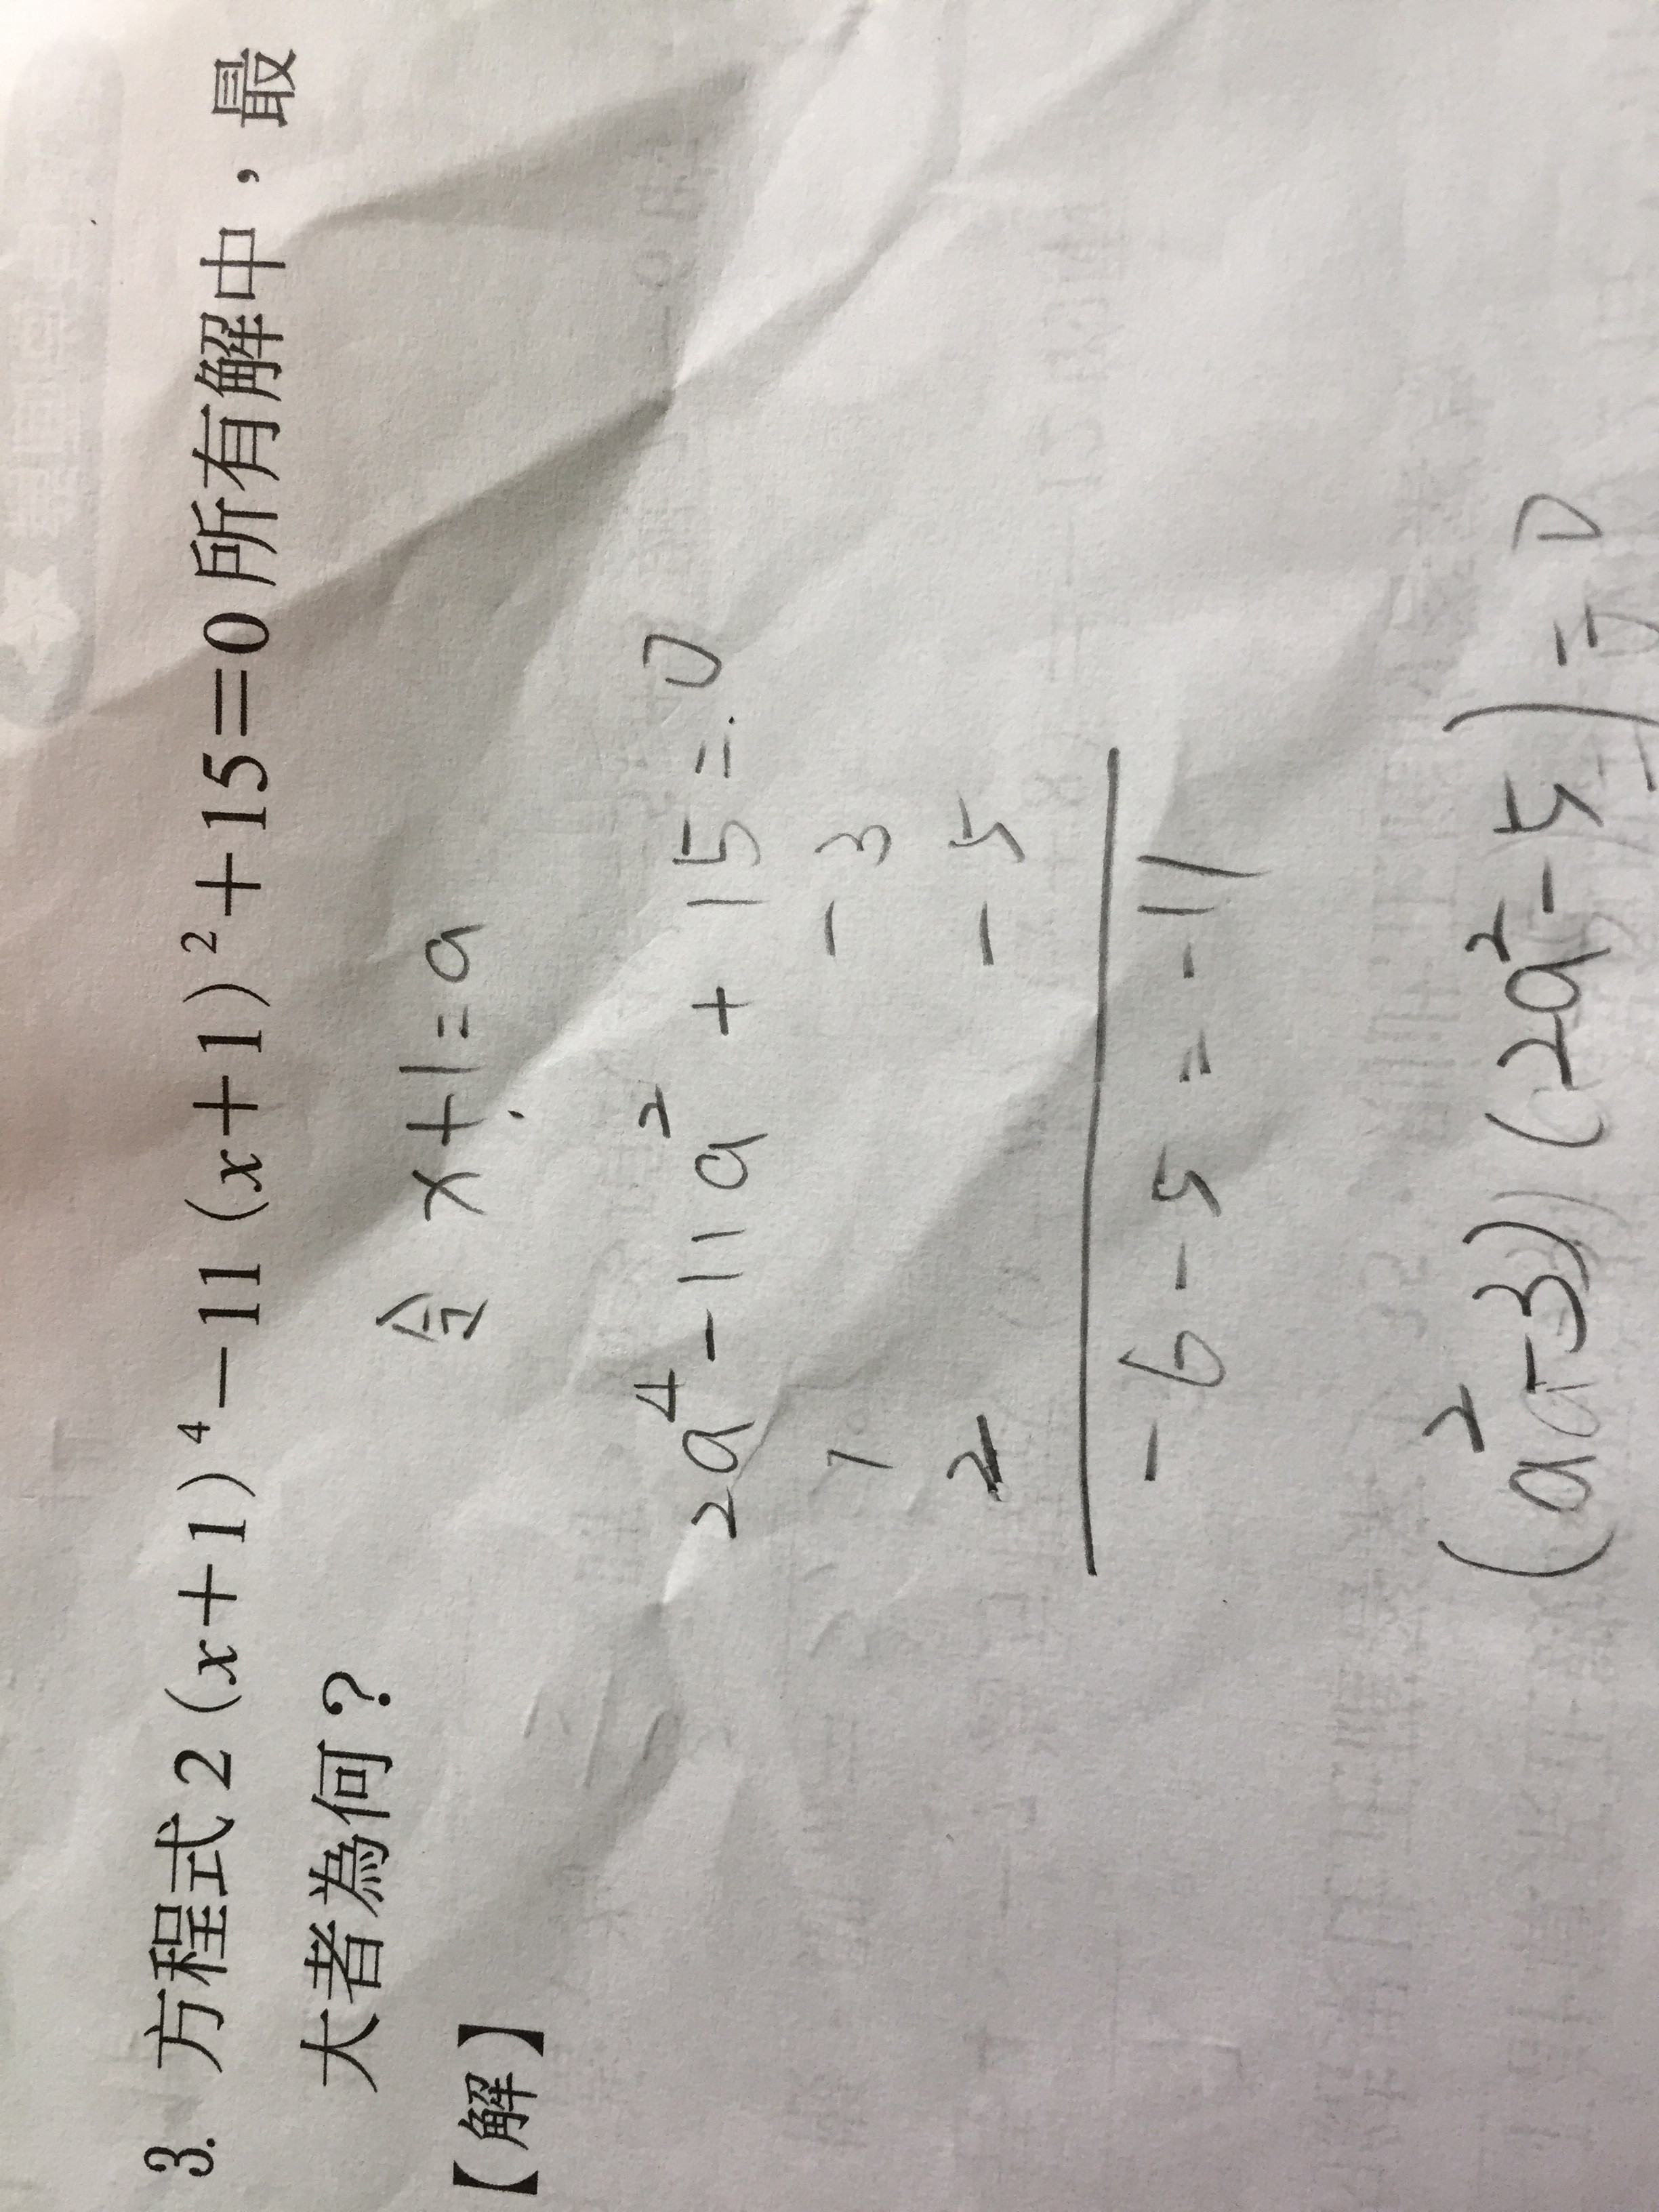 3. 方程式 2（x＋1）⁴－11（x＋1）²＋15＝0 所有解中，最
大者為何？
【解】
令 x+1=a
2a⁴-11a²+15=0
1 -3
2 -5
-6-5=-11
(a²-3)(2a²-5)=0